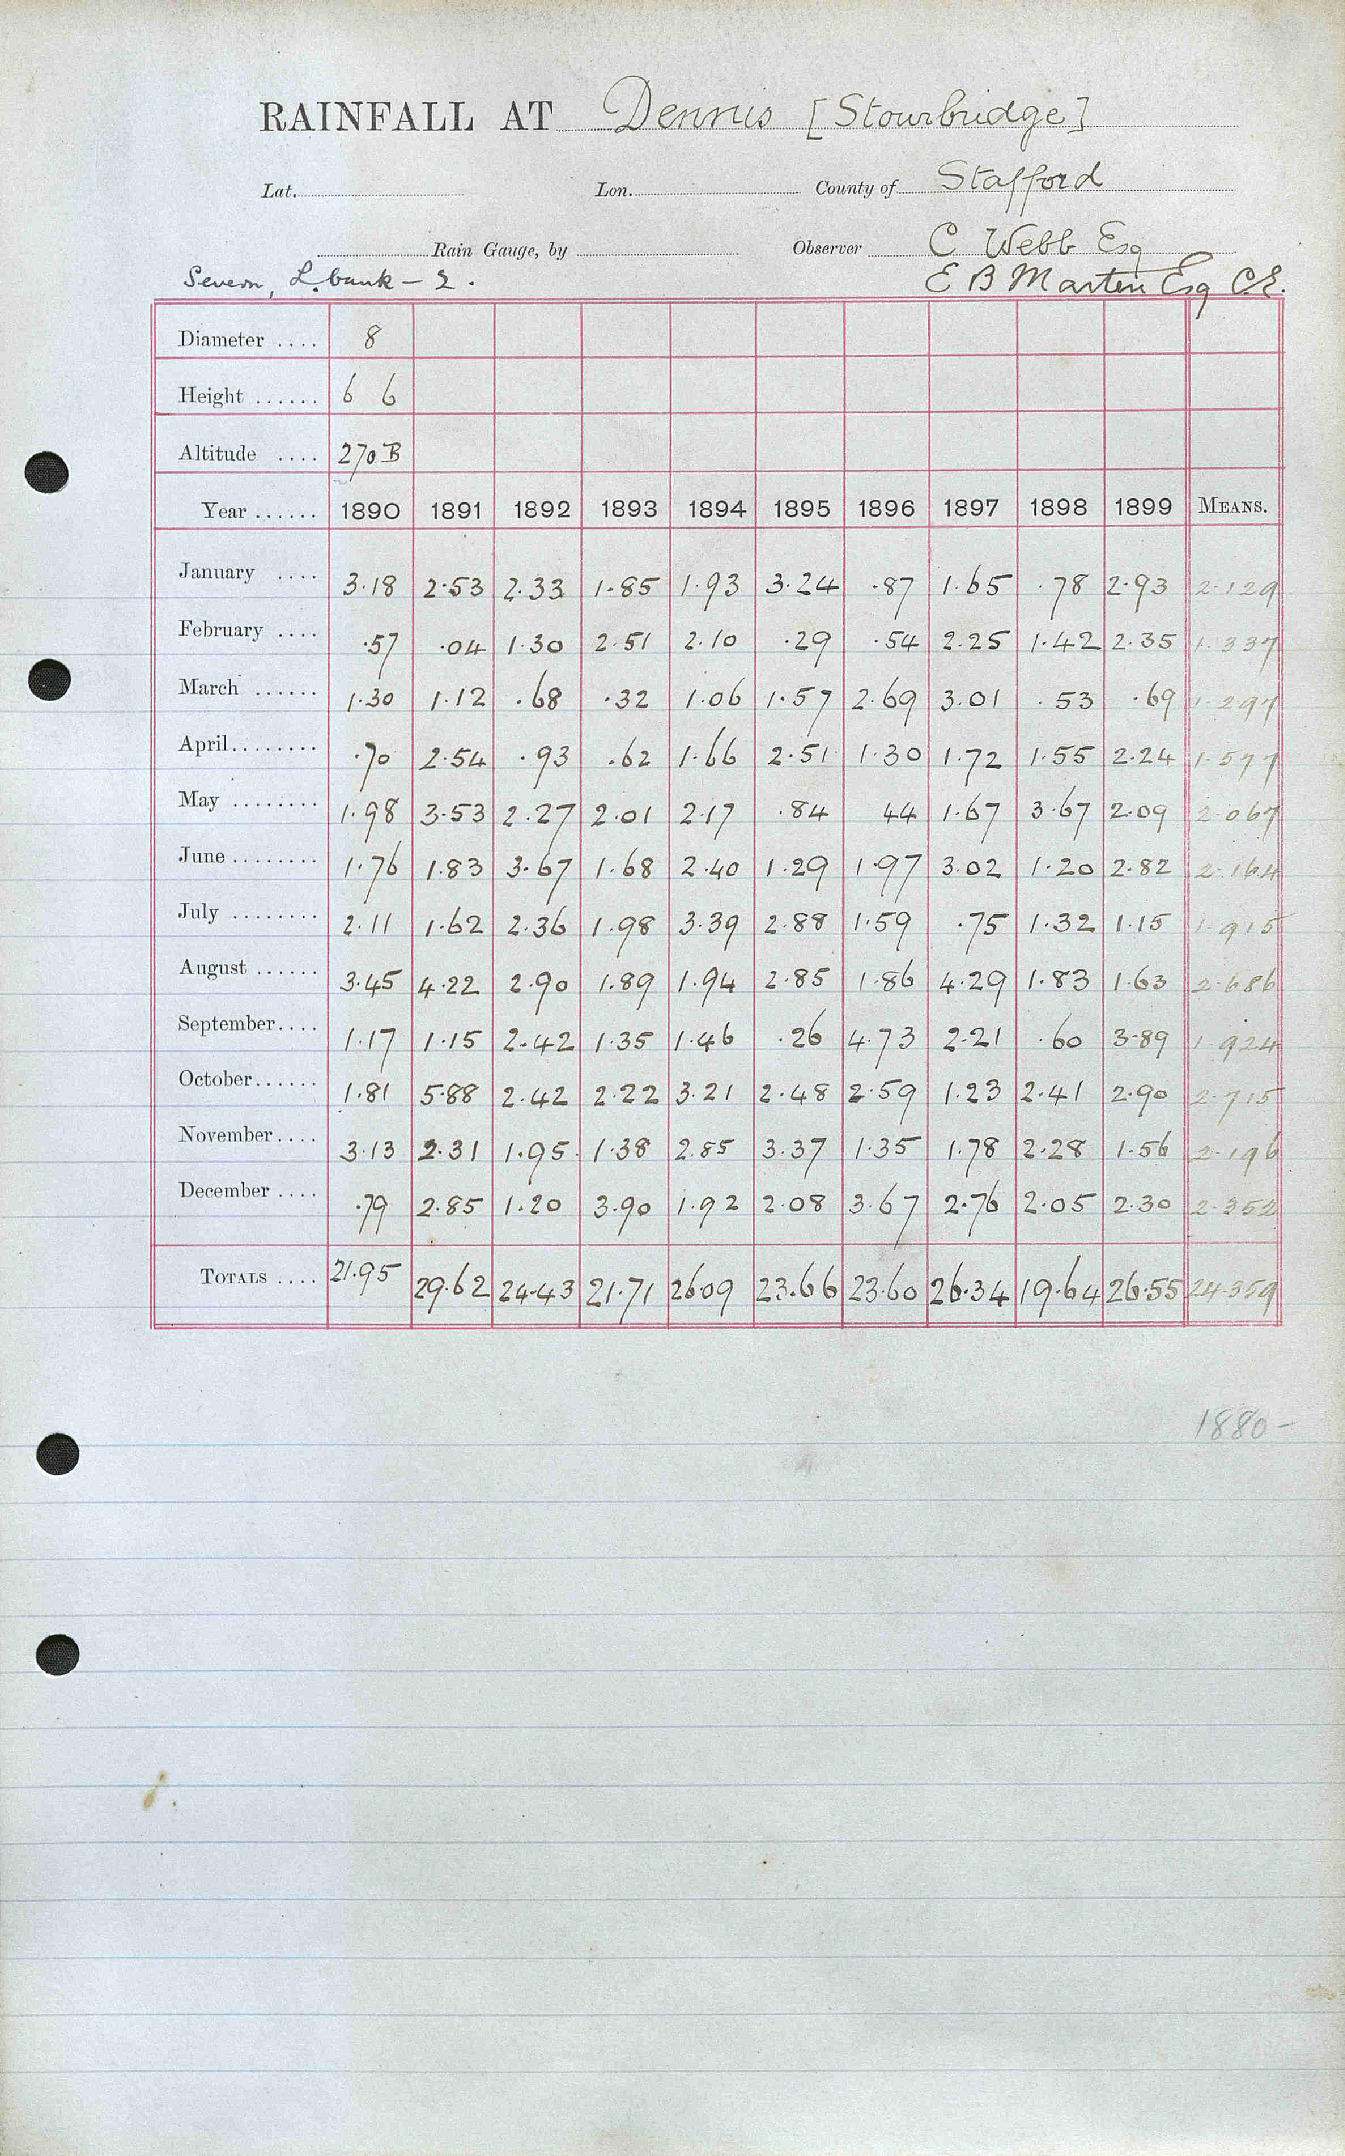 RAINFALL AT Dennis [Stourbridge]
Lat. Lon. County of Stafford
Rain Gauge, by Observer C Webb Esq
Severn, L. bank - 2. E B Marten Esq C.E.
Diameter .... 8
Height ...... 6 6
Altitude .... 270 B
Year ...... 1890 1891 1892 1893 1894 1895 1896 1897 1898 1899 MEANS.
January .... 3.18 2.53 2.33 1.85 1.93 3.24 .87 1.65 .78 2.93 2.129
February .... .57 .04 1.30 2.51 2.10 .29 .54 2.25 1.42 2.35 1.337
March ...... 1.30 1.12 .68 .32 1.06 1.57 2.69 3.01 .53 .69 1.297
April........ .70 2.54 .93 .62 1.66 2.51 1.30 1.72 1.55 2.24 1.577
May ........ 1.98 3.53 2.27 2.01 2.17 .84 44 1.67 3.67 2.09 2.067
June ........ 1.76 1.83 3.67 1.68 2.40 1.29 1.97 3.02 1.20 2.82 2.164
July ........ 2.11 1.62 2.36 1.98 3.39 2.88 1.59 .75 1.32 1.15 1.915
August ...... 3.45 4.22 2.90 1.89 1.94 2.85 1.86 4.29 1.83 1.63 2.686
September.... 1.17 1.15 2.42 1.35 1.46 .26 4.73 2.21 .60 3.89 1.924
October...... 1.81 5.88 2.42 2.22 3.21 2.48 2.59 1.23 2.41 2.90 2.715
November.... 3.13 2.31 1.95 1.38 2.85 3.37 1.35 1.78 2.28 1.56 2.196
December .... .79 2.85 1.20 3.90 1.92 2.08 3.67 2.76 2.05 2.30 2.352
TOTALS .... 21.95 29.62 24.43 21.71 26.09 23.66 23.60 26.34 19.64 26.55 24.359
1880-